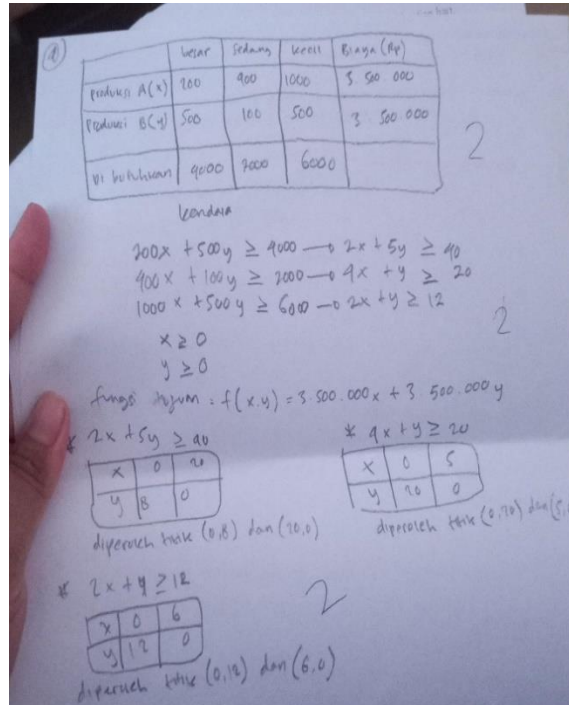 ①
besar | Sedang | kecil | Biaya (Rp)
Produksi A(x) | 200 | 400 | 1000 | 3.500.000
Produksi B(y) | 500 | 100 | 500 | 3.500.000
Di butuhkan | 4000 | 2000 | 6000
2
kendala
200x + 500y ≥ 4000 → 2x + 5y ≥ 40
400x + 100y ≥ 2000 → 4x + y ≥ 20
1000x + 500y ≥ 6000 → 2x + y ≥ 12
x ≥ 0
2
y ≥ 0
fungsi tujuan = f(x.y) = 3.500.000x + 3.500.000y
* 2x + 5y ≥ 40
x | 0 | 20
y | 8 | 0
diperoleh titik (0,8) dan (20,0)
* 4x + y ≥ 20
x | 0 | 5
y | 20 | 0
diperoleh titik (0,20) dan (5,
* 2x + y ≥ 12
x | 0 | 6
y | 12 | 0
2
diperoleh titik (0,12) dan (6,0)